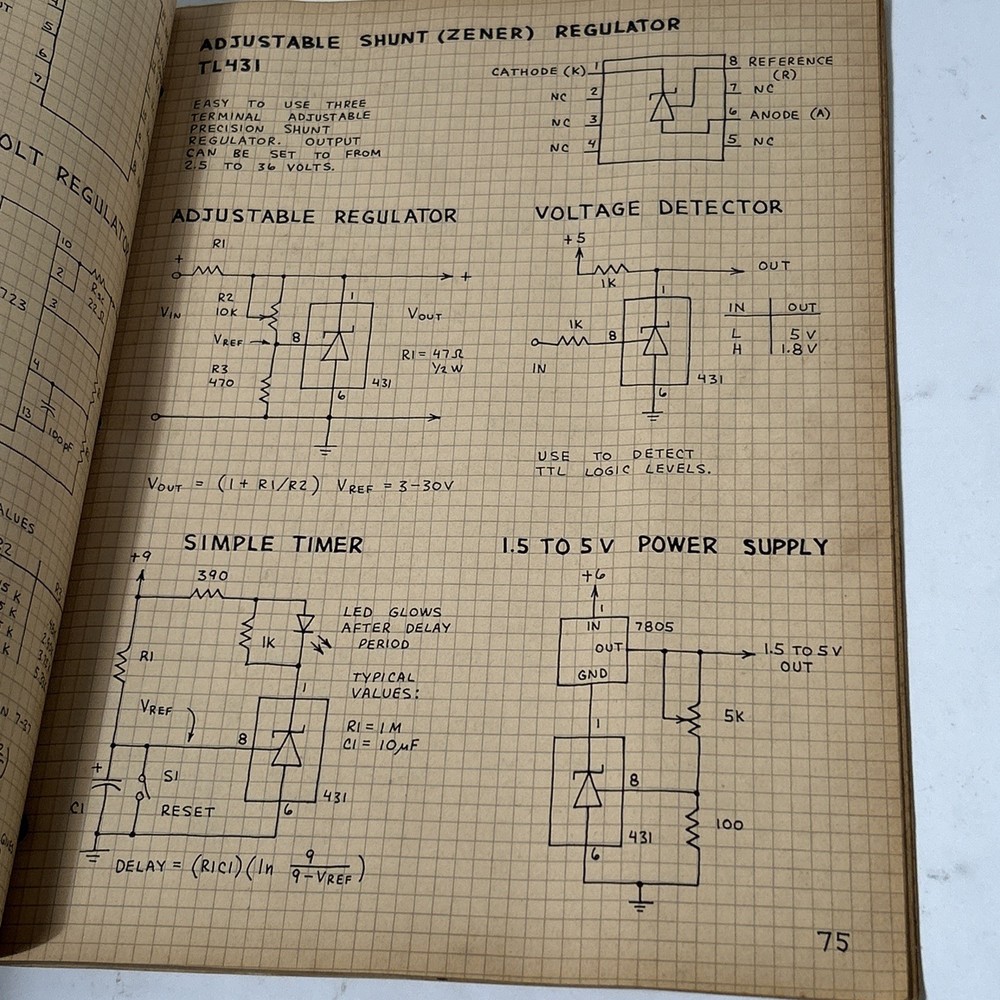 ADJUSTABLE SHUNT (ZENER) REGULATOR
TL431
EASY TO USE THREE
TERMINAL ADJUSTABLE
PRECISION SHUNT
REGULATOR. OUTPUT
CAN BE SET TO FROM
2.5 TO 36 VOLTS.
CATHODE (K) 1
NC 2
NC 3
NC 4
8 REFERENCE
(R)
7 NC
6 ANODE (A)
5 NC
ADJUSTABLE REGULATOR
R1
+
+
R2
10K
1
VIN
VOUT
VREF
8
R1 = 47Ω
1/2 W
R3
470
431
6
VOUT = (1 + R1/R2) VREF = 3-30V
VOLTAGE DETECTOR
+5
OUT
1K
1
IN OUT
1K
8
L 5V
H 1.8V
IN
431
6
USE TO DETECT
TTL LOGIC LEVELS.
SIMPLE TIMER
+9
390
LED GLOWS
AFTER DELAY
PERIOD
1K
R1
TYPICAL
VALUES:
1
VREF
R1 = 1M
C1 = 10µF
8
+
S1
C1
431
RESET
6
DELAY = (R1C1)(ln 9
9-VREF)
1.5 TO 5V POWER SUPPLY
+6
1
IN
7805
OUT
1.5 TO 5V
OUT
GND
5K
1
8
100
431
6
75
OLT REGULATO
5
6
7
10
2
723
3
4
13
100pF
ALUES